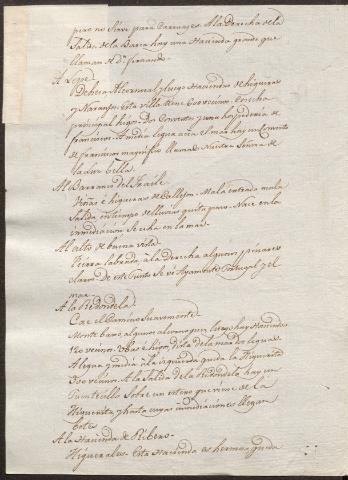 pero no sirve para Carruages. A la derecha de la
salida de la Barca hay una Hacienda grande que
llaman de Dn. fernando.
A Lepe
Dehesa Alcornocal y luego Haciendas de higueras
y Naranjos. Esta Villa tiene vecinos. Cosecha
principal higos. Dos Conventos y una hospederia de
franciscos. A media legua azia el mar hay un Convento
de franciscos magnifico llamado Nuestra Señora de
la Luz bella.
Al Barranco del Fraile
Viñas e higueras de Callejon. Mala entrada mala
salida, en tiempo de lluvias quita paso. Nace en la
inmediacion se echa en la mar.
Al alto de buena vista
Tierra labrada, a la derecha algunos pinares
claros. De este Punto se ve Ayamonte Portugal y el
mar.
A la Redondela
Cae el Camino suavemente.
Monte baxo algunos alcornoques luego hay Haciendas
120 vecinos. Ubas e higos, dista de la mar leguas.
A legua y media a la izquierda queda la Higuerita
300 vecinos. A la salida de la Redondela hay un
Puentecillo sobre un estero que viene de la
Higuerita, y hasta cuyas inmediaciones llegan
botes
A la Hacienda de Ribero.
Higuerales. Esta Hacienda es hermosa queda